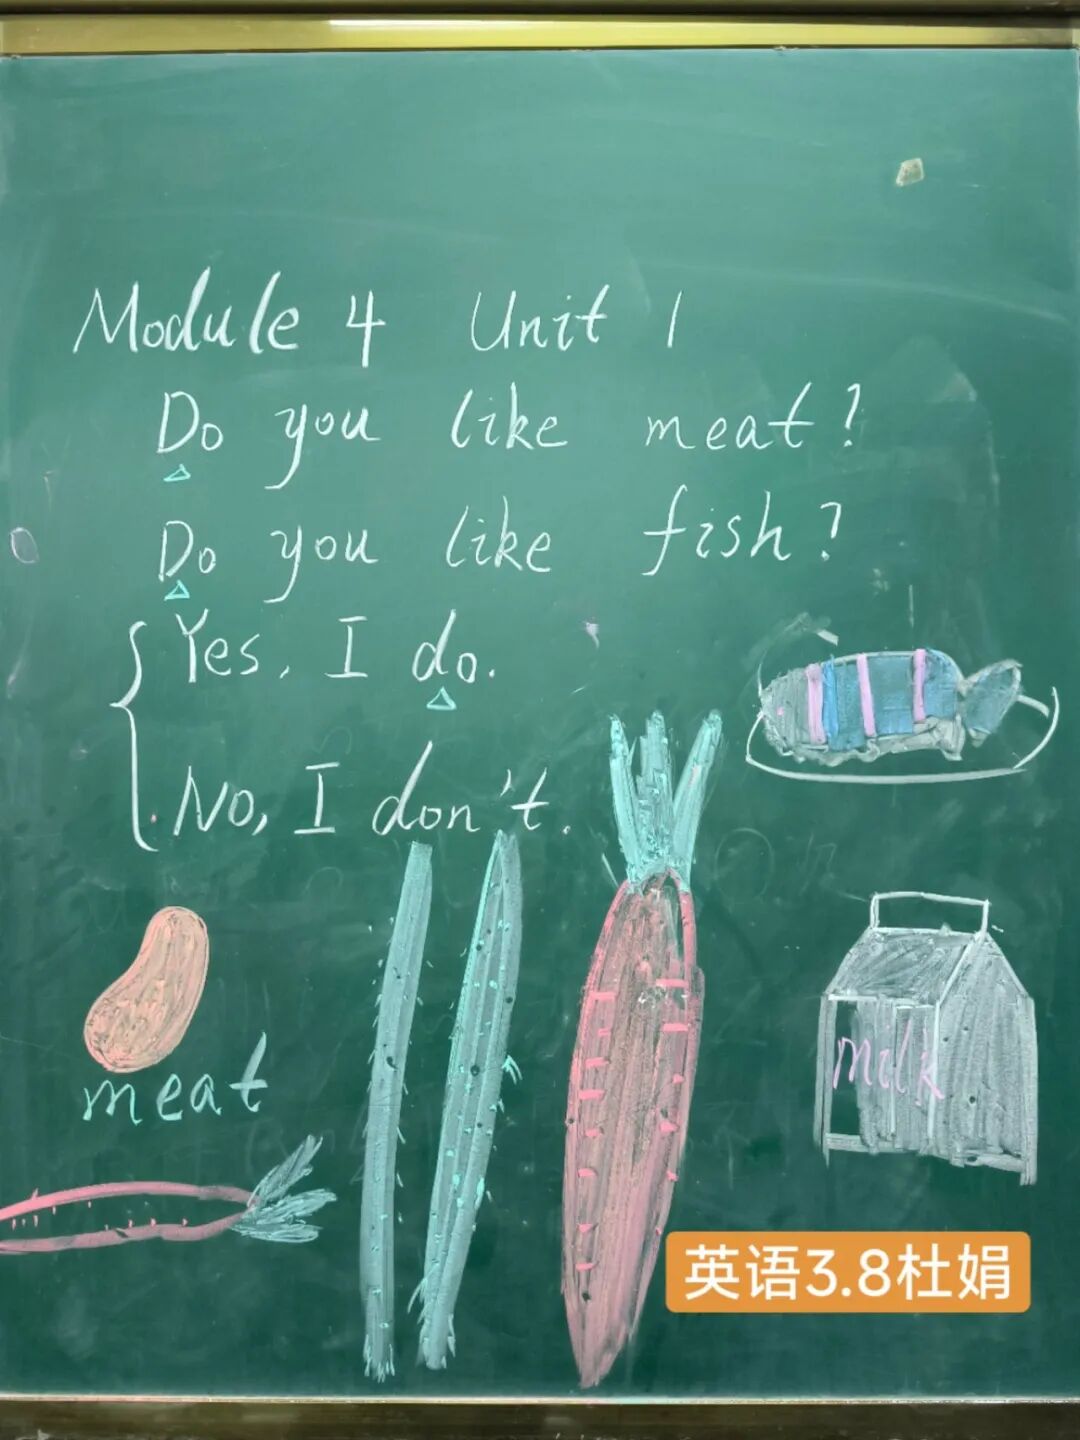 Module 4 Unit 1
Do you like meat?
Do you like fish?
Yes, I do.
No, I don't.
meat
milk
英语3.8杜娟